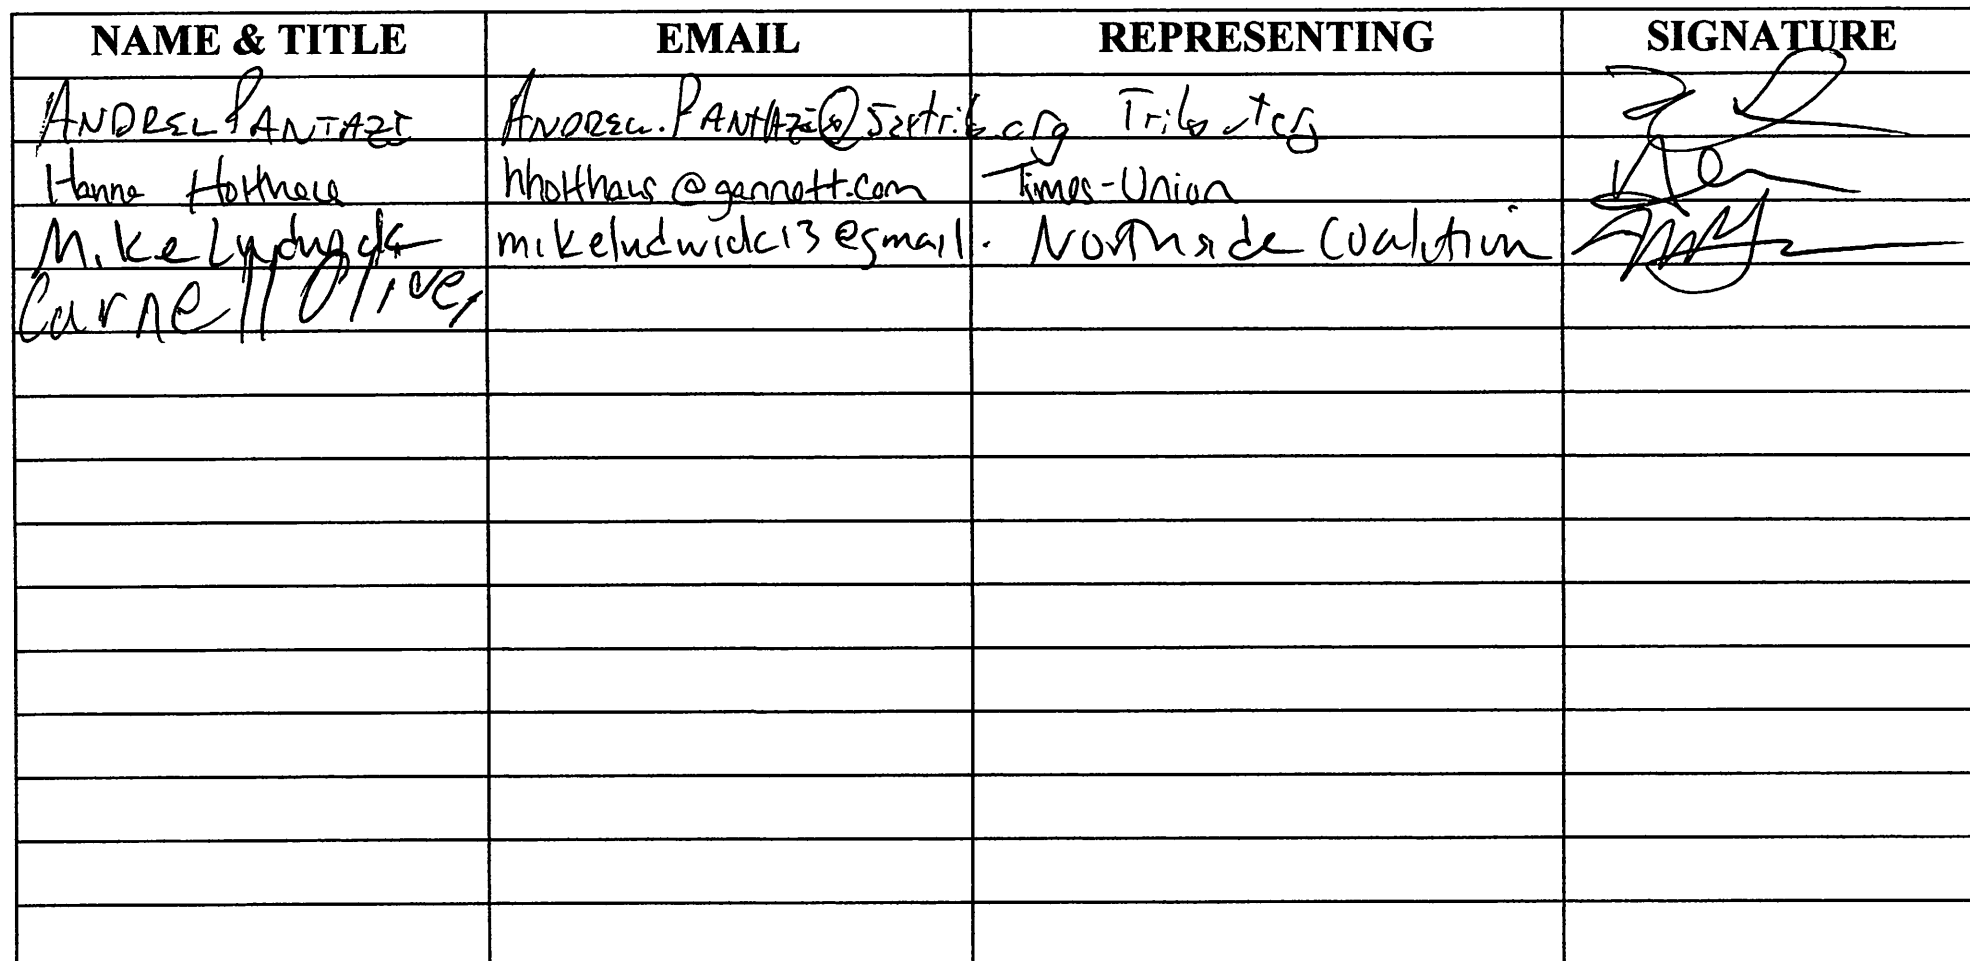 NAME & TITLE EMAIL REPRESENTING SIGNATURE
ANDREW PANTAZI ANDREW.PANTAZI@jaxtrib.org Tributary
Hanna Holthaus hholthaus@gannett.com Times-Union
Mike Ludwick mikeludwick13@gmail. Northside Coalition
Carnell Oliver